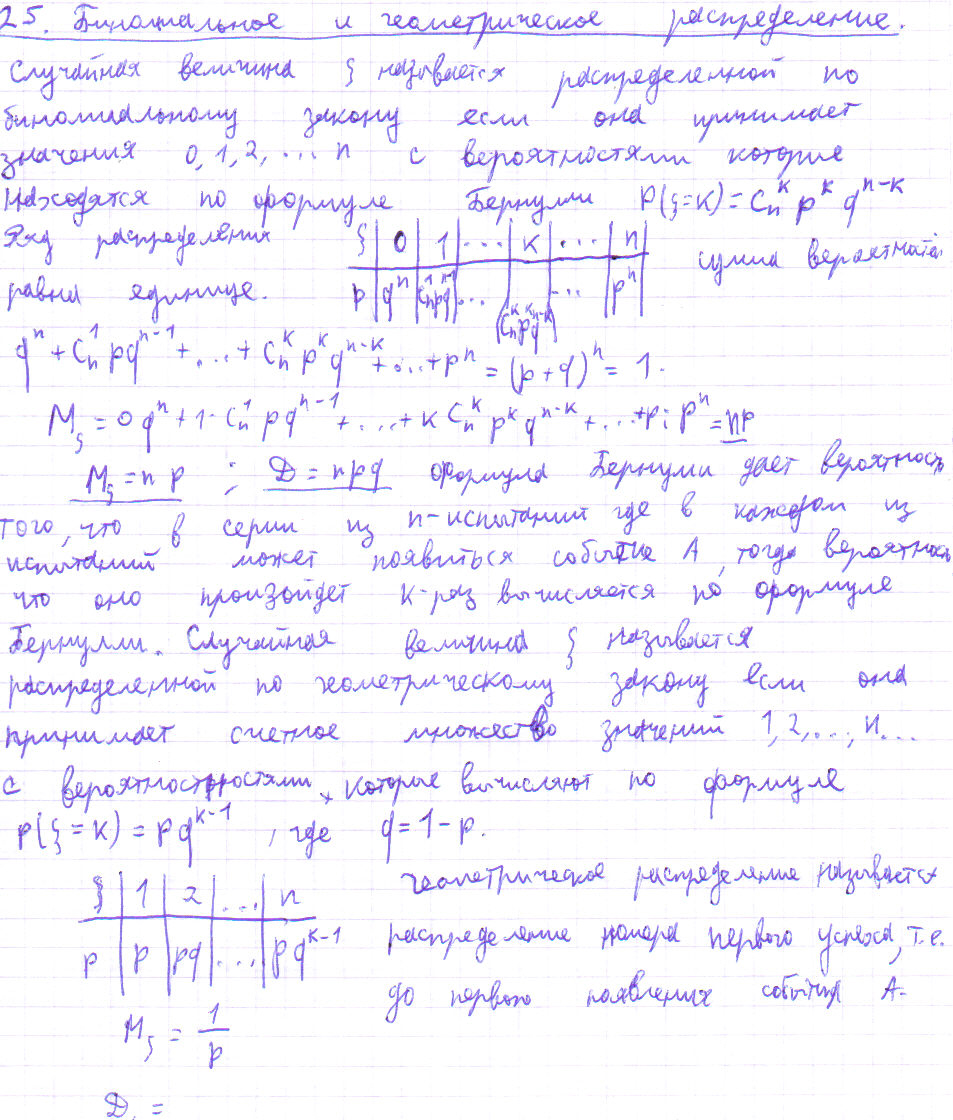 25. Биномиальное и геометрическое распределение.
Случайная величина ξ называется распределенной по
биномиальному закону если она принимает
значения 0, 1, 2, ... n с вероятностями которые
находятся по формуле Бернулли P(ξ=k) = C_n^k p^k q^{n-k}
Ряд распределения ξ | 0 | 1 | ... | k | ... | n сумма вероятностей
равна единице. p | q^n | C_n^1 p q^{n-1} | ... | C_n^k p^k q^{n-k} | ... | p^n
q^n + C_n^1 p q^{n-1} + ... + C_n^k p^k q^{n-k} + ... + p^n = (p+q)^n = 1.
M_ξ = 0 q^n + 1 · C_n^1 p q^{n-1} + ... + k C_n^k p^k q^{n-k} + ... + p · p^n = np
M_ξ = n p ; D = npq формула Бернулли дает вероятность
того, что в серии из n-испытаний где в каждом из
испытаний может появиться событие A, тогда вероятность
что оно произойдет k-раз вычисляется по формуле
Бернулли. Случайная величина ξ называется
распределенной по геометрическому закону если она
принимает счетное множество значений 1, 2, ..., n...
с которые вычисляют по формуле
p(ξ=k) = p q^{k-1}, где q = 1 - p.
ξ | 1 | 2 | ... | n геометрическое распределение называется
p | p | pq | ... | p q^{k-1} распределение номера первого успеха, т.е.
до первого появления события A.
M_ξ = 1/p
D_ξ =